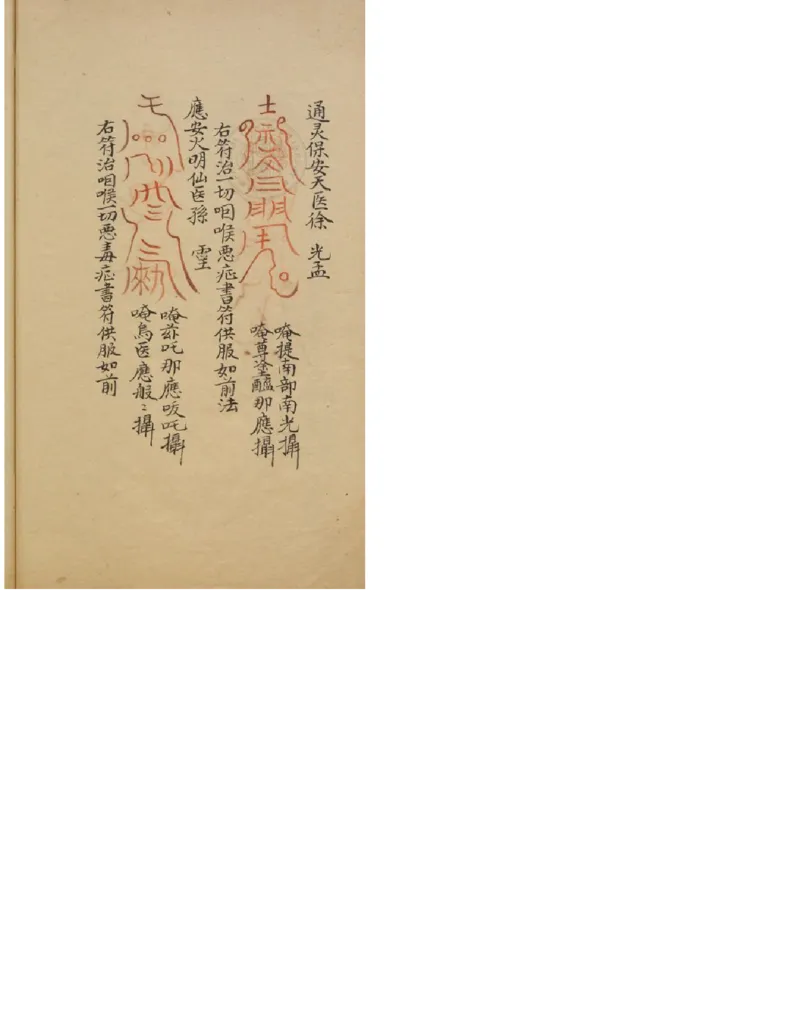 通灵保安天医徐 光孟
唵提南部南光攝
唵尊塗醯那應攝
右符治一切咽喉悪症書符供服如前法
應安火明仙医孫 霊
唵茲吒那應吱吒攝
唵烏医應般〻攝
右符治咽喉一切悪毒症書符供服如前